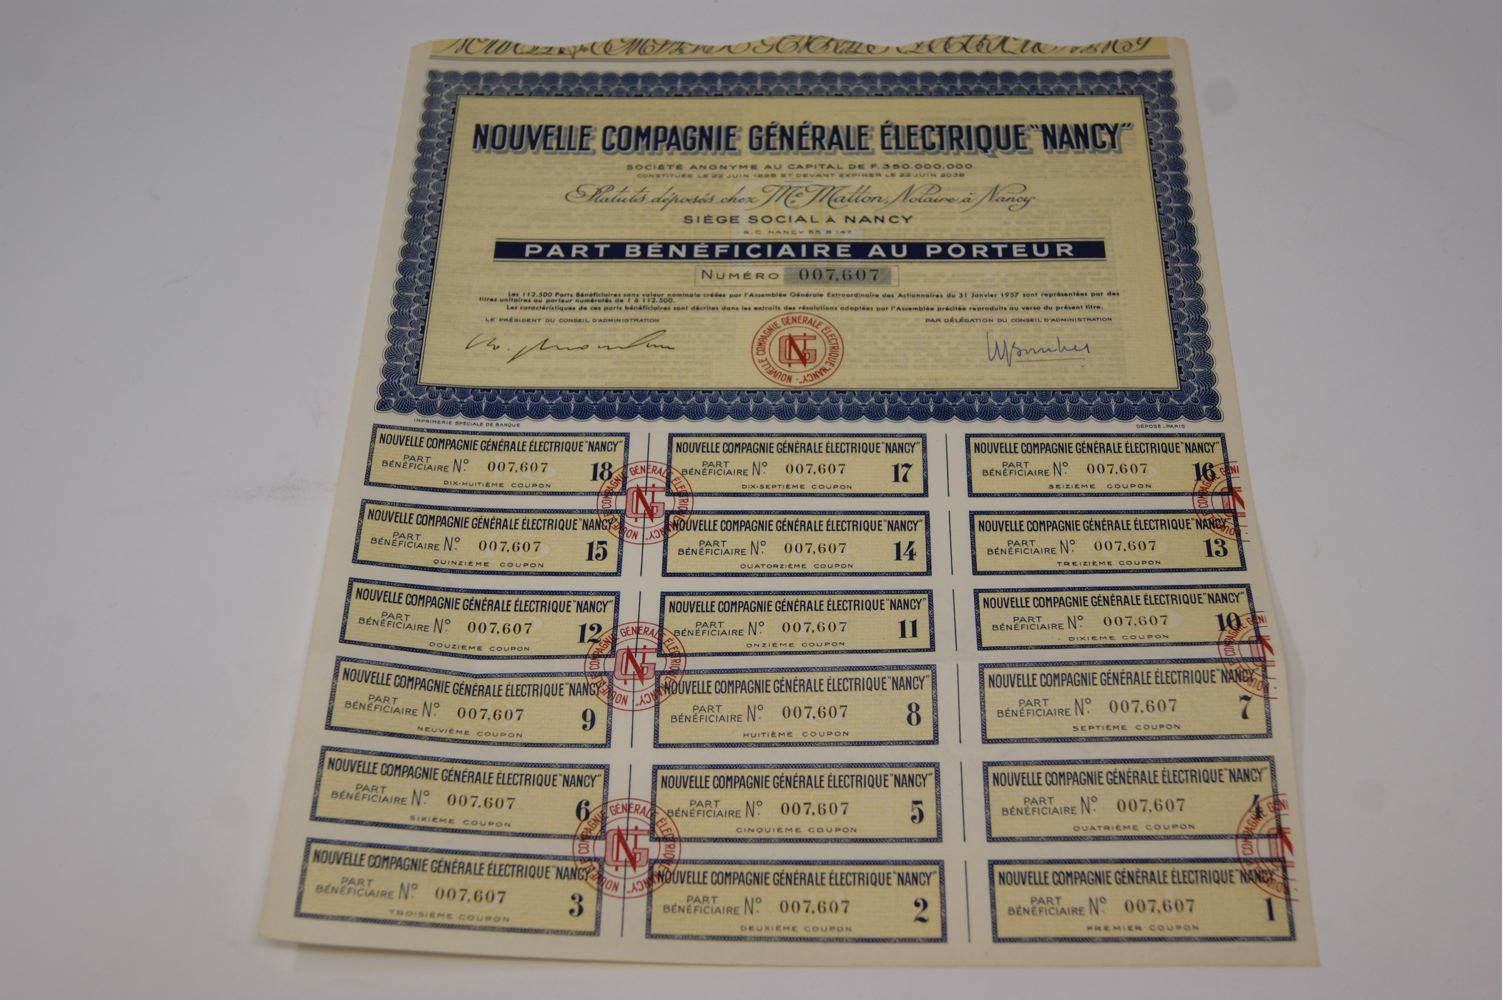 NOUVELLE COMPAGNIE GÉNÉRALE ÉLECTRIQUE "NANCY"
SOCIÉTÉ ANONYME AU CAPITAL DE F. 350.000.000
CONSTITUÉE LE 22 JUIN 1898 ET DEVANT EXPIRER LE 22 JUIN 2038
Statuts déposés chez Me Matton, Notaire à Nancy
SIÈGE SOCIAL A NANCY
R.C. NANCY 55 B 147
PART BÉNÉFICIAIRE AU PORTEUR
NUMÉRO 007,607
Les 112.500 Parts Bénéficiaires sans valeur nominale créées par l'Assemblée Générale Extraordinaire des Actionnaires du 31 Janvier 1957 sont représentées par des
titres unitaires au porteur numérotés de 1 à 112.500.
Les caractéristiques de ces parts bénéficiaires sont décrites dans les extraits des résolutions adoptées par l'Assemblée précitée reproduits au verso du présent titre.
LE PRÉSIDENT DU CONSEIL D'ADMINISTRATION PAR DÉLÉGATION DU CONSEIL D'ADMINISTRATION
NOUVELLE COMPAGNIE GÉNÉRALE ÉLECTRIQUE "NANCY"
IMPRIMERIE SPÉCIALE DE BANQUE DÉPOSÉ - PARIS
NOUVELLE COMPAGNIE GÉNÉRALE ÉLECTRIQUE "NANCY"
PART BÉNÉFICIAIRE No 007,607 18
DIX-HUITIÈME COUPON
NOUVELLE COMPAGNIE GÉNÉRALE ÉLECTRIQUE "NANCY"
PART BÉNÉFICIAIRE No 007,607 17
DIX-SEPTIÈME COUPON
NOUVELLE COMPAGNIE GÉNÉRALE ÉLECTRIQUE "NANCY"
PART BÉNÉFICIAIRE No 007,607 16
SEIZIÈME COUPON
NOUVELLE COMPAGNIE GÉNÉRALE ÉLECTRIQUE "NANCY"
PART BÉNÉFICIAIRE No 007,607 15
QUINZIÈME COUPON
NOUVELLE COMPAGNIE GÉNÉRALE ÉLECTRIQUE "NANCY"
PART BÉNÉFICIAIRE No 007,607 14
QUATORZIÈME COUPON
NOUVELLE COMPAGNIE GÉNÉRALE ÉLECTRIQUE "NANCY"
PART BÉNÉFICIAIRE No 007,607 13
TREIZIÈME COUPON
NOUVELLE COMPAGNIE GÉNÉRALE ÉLECTRIQUE "NANCY"
PART BÉNÉFICIAIRE No 007,607 12
DOUZIÈME COUPON
NOUVELLE COMPAGNIE GÉNÉRALE ÉLECTRIQUE "NANCY"
PART BÉNÉFICIAIRE No 007,607 11
ONZIÈME COUPON
NOUVELLE COMPAGNIE GÉNÉRALE ÉLECTRIQUE "NANCY"
PART BÉNÉFICIAIRE No 007,607 10
DIXIÈME COUPON
NOUVELLE COMPAGNIE GÉNÉRALE ÉLECTRIQUE "NANCY"
PART BÉNÉFICIAIRE No 007,607 9
NEUVIÈME COUPON
NOUVELLE COMPAGNIE GÉNÉRALE ÉLECTRIQUE "NANCY"
PART BÉNÉFICIAIRE No 007,607 8
HUITIÈME COUPON
NOUVELLE COMPAGNIE GÉNÉRALE ÉLECTRIQUE "NANCY"
PART BÉNÉFICIAIRE No 007,607 7
SEPTIÈME COUPON
NOUVELLE COMPAGNIE GÉNÉRALE ÉLECTRIQUE "NANCY"
PART BÉNÉFICIAIRE No 007,607 6
SIXIÈME COUPON
NOUVELLE COMPAGNIE GÉNÉRALE ÉLECTRIQUE "NANCY"
PART BÉNÉFICIAIRE No 007,607 5
CINQUIÈME COUPON
NOUVELLE COMPAGNIE GÉNÉRALE ÉLECTRIQUE "NANCY"
PART BÉNÉFICIAIRE No 007,607 4
QUATRIÈME COUPON
NOUVELLE COMPAGNIE GÉNÉRALE ÉLECTRIQUE "NANCY"
PART BÉNÉFICIAIRE No 007,607 3
TROISIÈME COUPON
NOUVELLE COMPAGNIE GÉNÉRALE ÉLECTRIQUE "NANCY"
PART BÉNÉFICIAIRE No 007,607 2
DEUXIÈME COUPON
NOUVELLE COMPAGNIE GÉNÉRALE ÉLECTRIQUE "NANCY"
PART BÉNÉFICIAIRE No 007,607 1
PREMIER COUPON